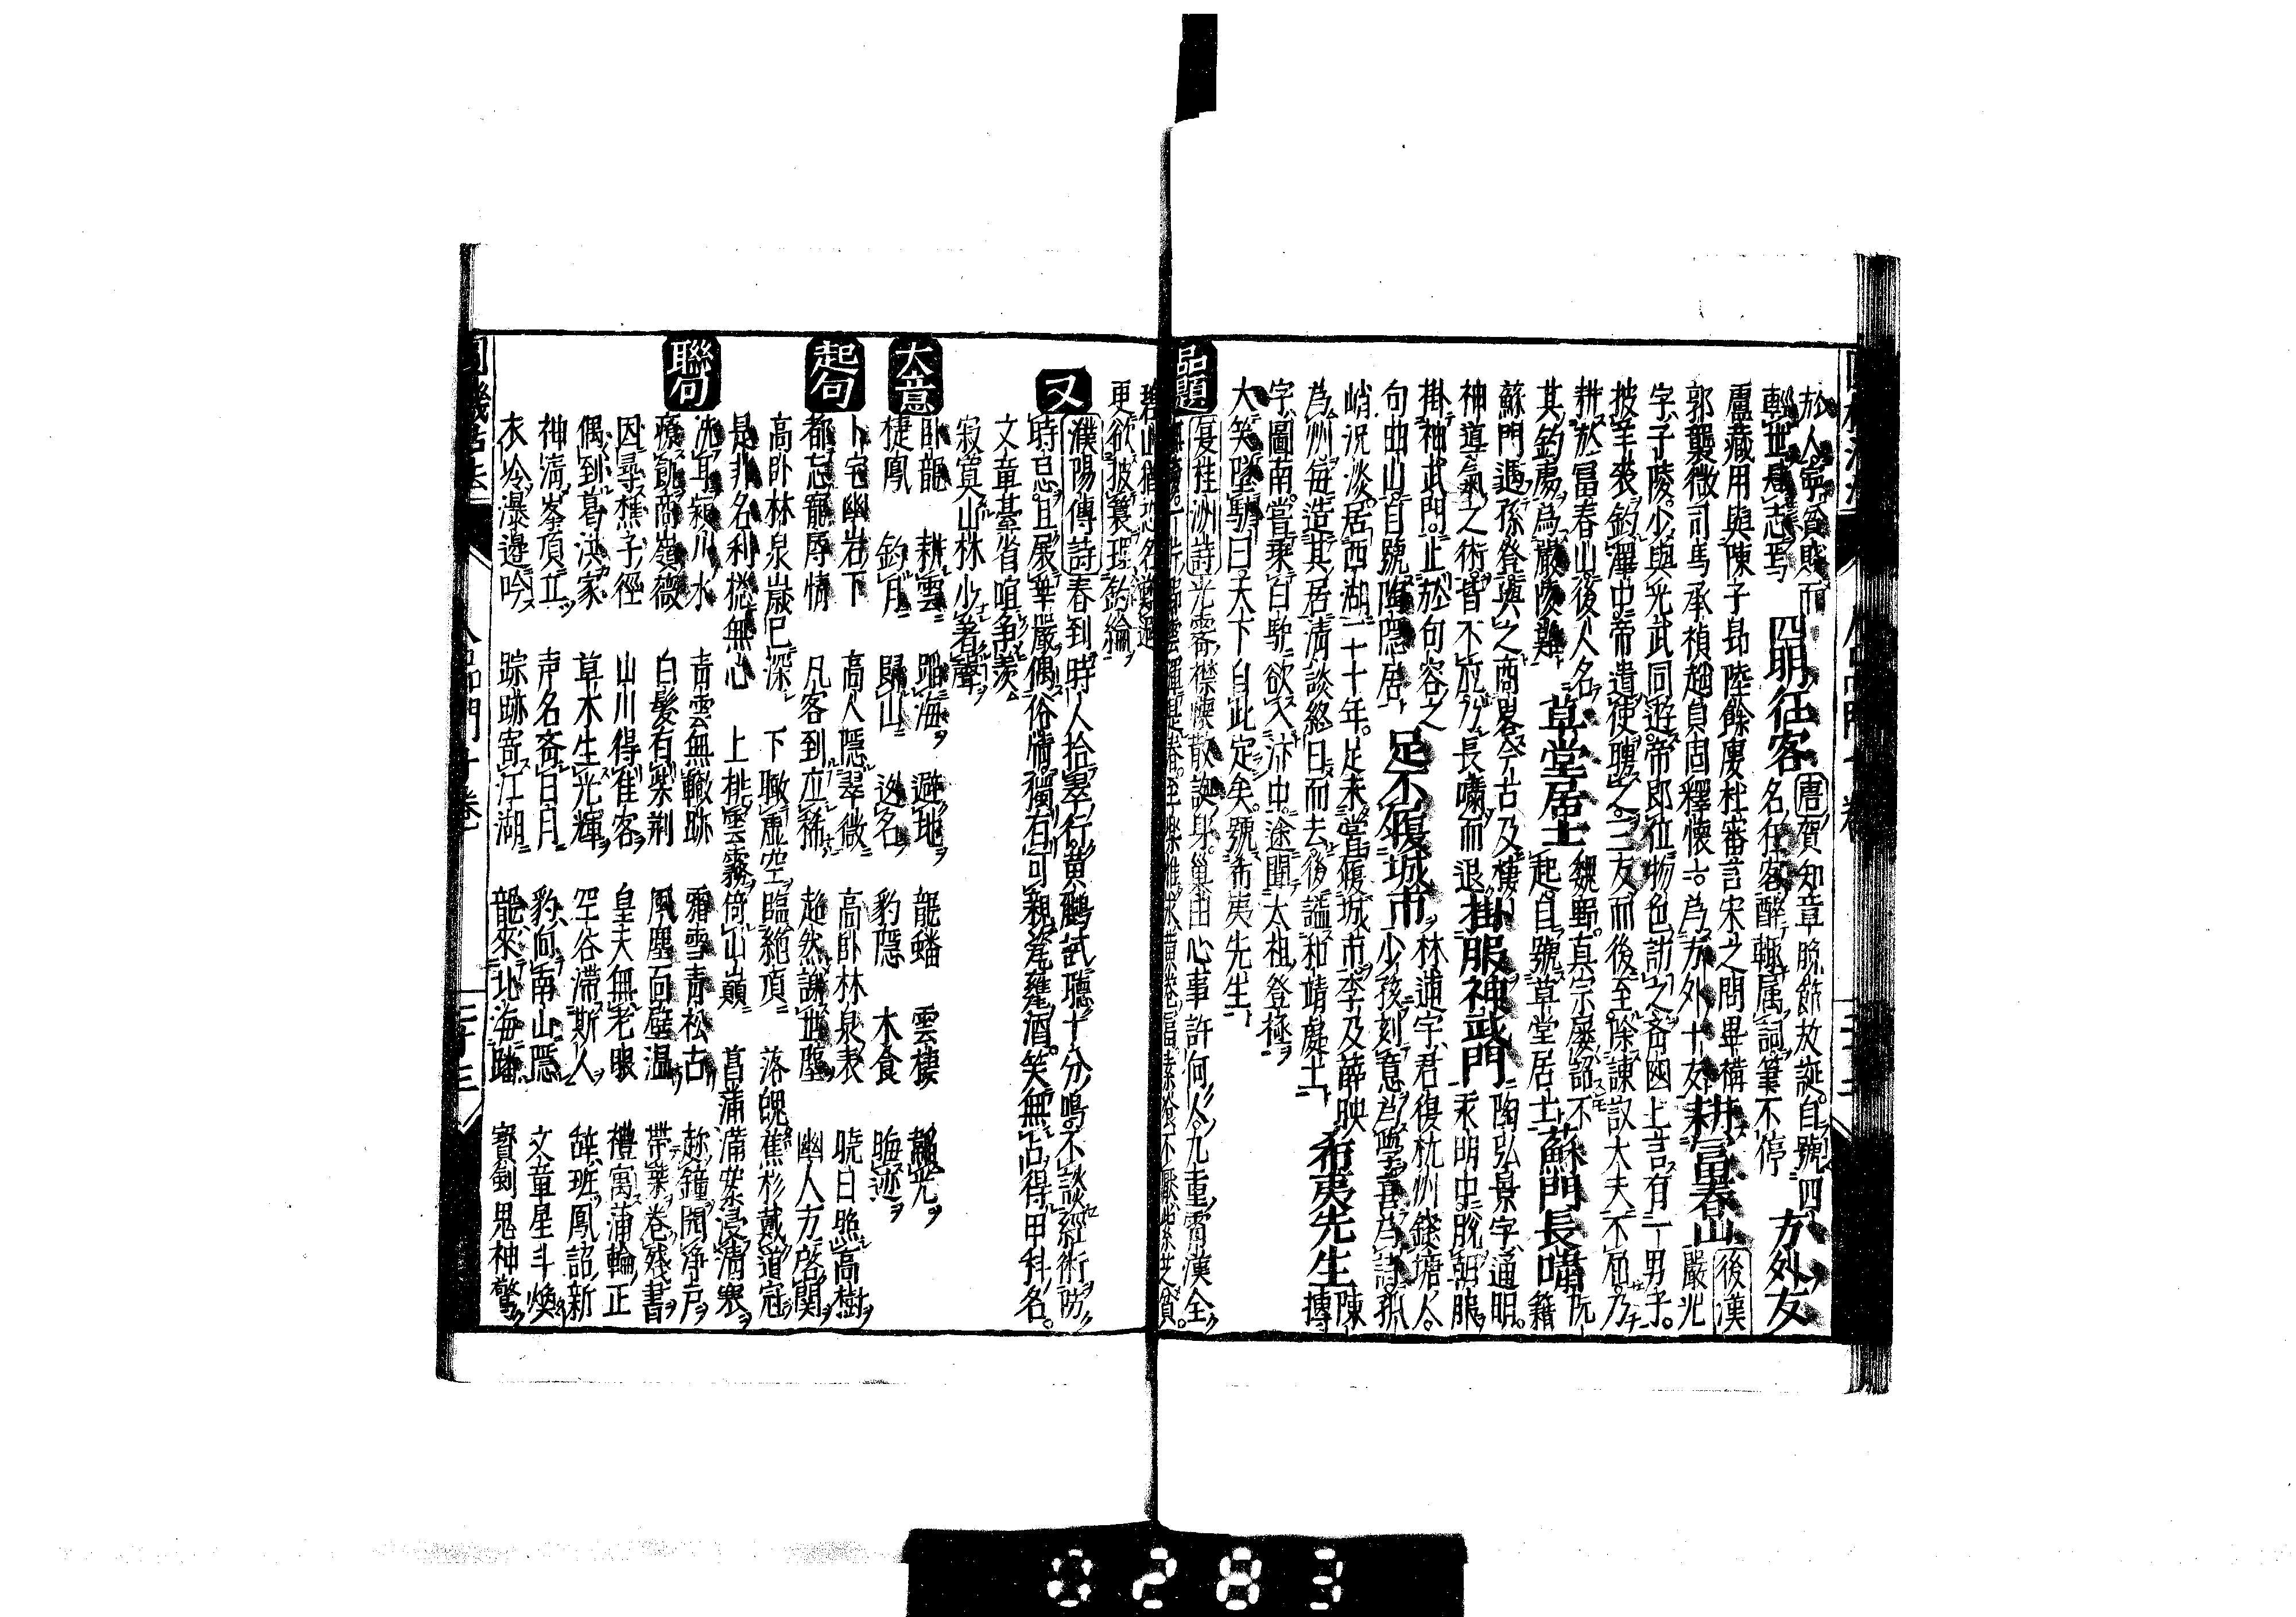 於人寧貧賤而
輕世肆志焉 四明狂客 唐賀知章晚節放誕自號四
名狂客醉輒属詞筆不停 方外友
盧藏用與陳子昂陸餘慶杜審言宋之問畢構
郭襲微司馬承禎趙貞固釋懷一爲方外十友 耕富春山 後漢
嚴光
字子陵少與光武同遊帝即位物色訪之斉國上言有一男子
披羊裘釣澤中帝遣使聘之三反而後至除諫議大夫不屈乃
耕於冨春山後人名
其釣處爲嚴陵瀬 草堂居士 魏野真宗屢詔不
起自號草堂居士 蘇門長嘯 阮
籍
蘇門遇孫登與之商畧今古及棲
神道氣之術皆不應乃長嘯而退 掛服神武門 陶弘景字通明
永明中脱朝服
掛神武門止於句容之
句曲山自號陶隱居 足不履城市 林逋字君復杭州錢塘人
少孩刻意爲學喜爲詩孤
峭況淡居西湖二十年足未嘗履城市李及薛映
爲州毎造其居清談終日而去後謚和靖處士 希夷先生 陳
摶
字圖南嘗乘白驢欲入汴中途聞太祖登極
大笑墜驢曰天下自此定矣號希夷先生
品題 夏桂洲詩 光霽襟懐散誕身巢由心事許何人九重霄漢全
碧山猶恐名難避
更欲披蓑理釣綸
又 濮陽傳詩 春到時人拾翠行黄鸝試聽十分鳴不談經術防
時忌且展華嚴偶俗情獨有可親篘甕酒笑無占得甲科名
文章臺省喧争羨
寂寞山林少著聲
大意 卧龍 耕雲 蹈海 避地 龍蟠 雲棲 韜光
棲鳳 釣月 歸山 逃名 豹隠 木食 晦迹
起句 卜宅幽岩下 高人隱翠微 高卧林泉表 曉日照高樹
都忘寵辱情 凡客到應稀 超然謝世塵 幽人方啓関
高卧林泉歳已深 下瞰虚空臨絶頂 落魄蕉衫戴道冠
是非名利揔無心 上排雲霧倚山巓 菖蒲満案浸清泉
聯句 洗耳潁川水 青雲無轍跡 霜雪青松古 趂鐘開浄戸
療飢商嶺薇 白髮有柴荆 風塵面壁温 帶葉卷殘書
因尋樵子徑 山川得佳客 皇天無老眼 禮寓蒲輪正
偶到葛洪家 草木生光輝 空谷滯斯人 辞班鳳詔新
神清峯頂立 声名斉日月 豹向南山隱 文章星斗煥
衣冷瀑邊吟 踪跡寄江湖 龍來北海蹯 寳劍鬼神驚
0283